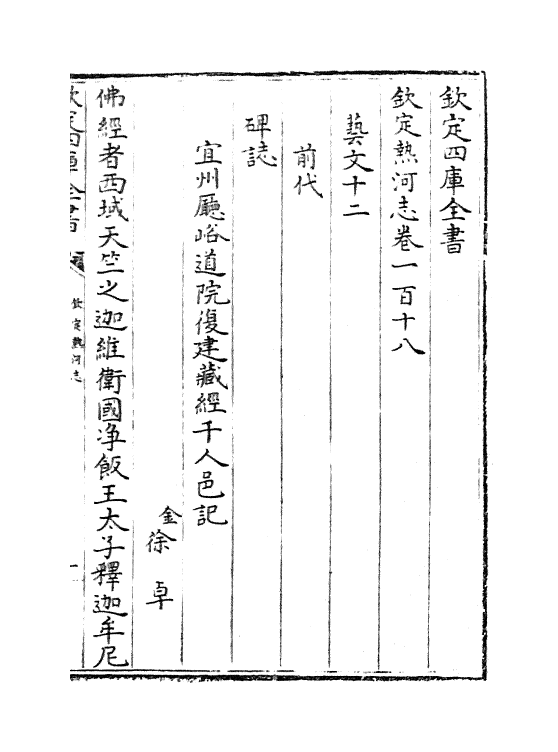 欽定四庫全書
欽定熱河志卷一百十八
藝文十二
前代
碑誌
宜州廳峪道院復建藏經千人邑記
金徐卓
佛經者西域天竺之迦維衛國净飯王太子釋迦牟尼
欽定四庫全書
欽定熱河志
一